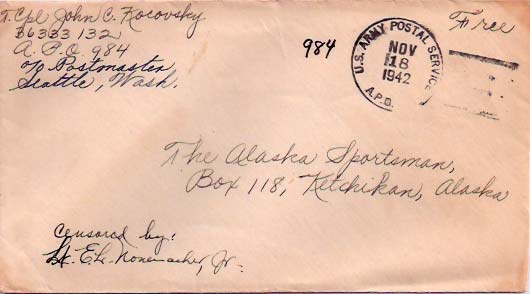 T. Cpl John C. Kocovsky
36333132
A.P.O. 984
c/o Postmaster
Seattle, Wash.
984
U.S. ARMY POSTAL SERVICE
NOV
18
1942
A.P.O.
Free
The Alaska Sportsman,
Box 118, Ketchikan, Alaska
Censored by:
Lt. E.L. Nonemacher, Jr.